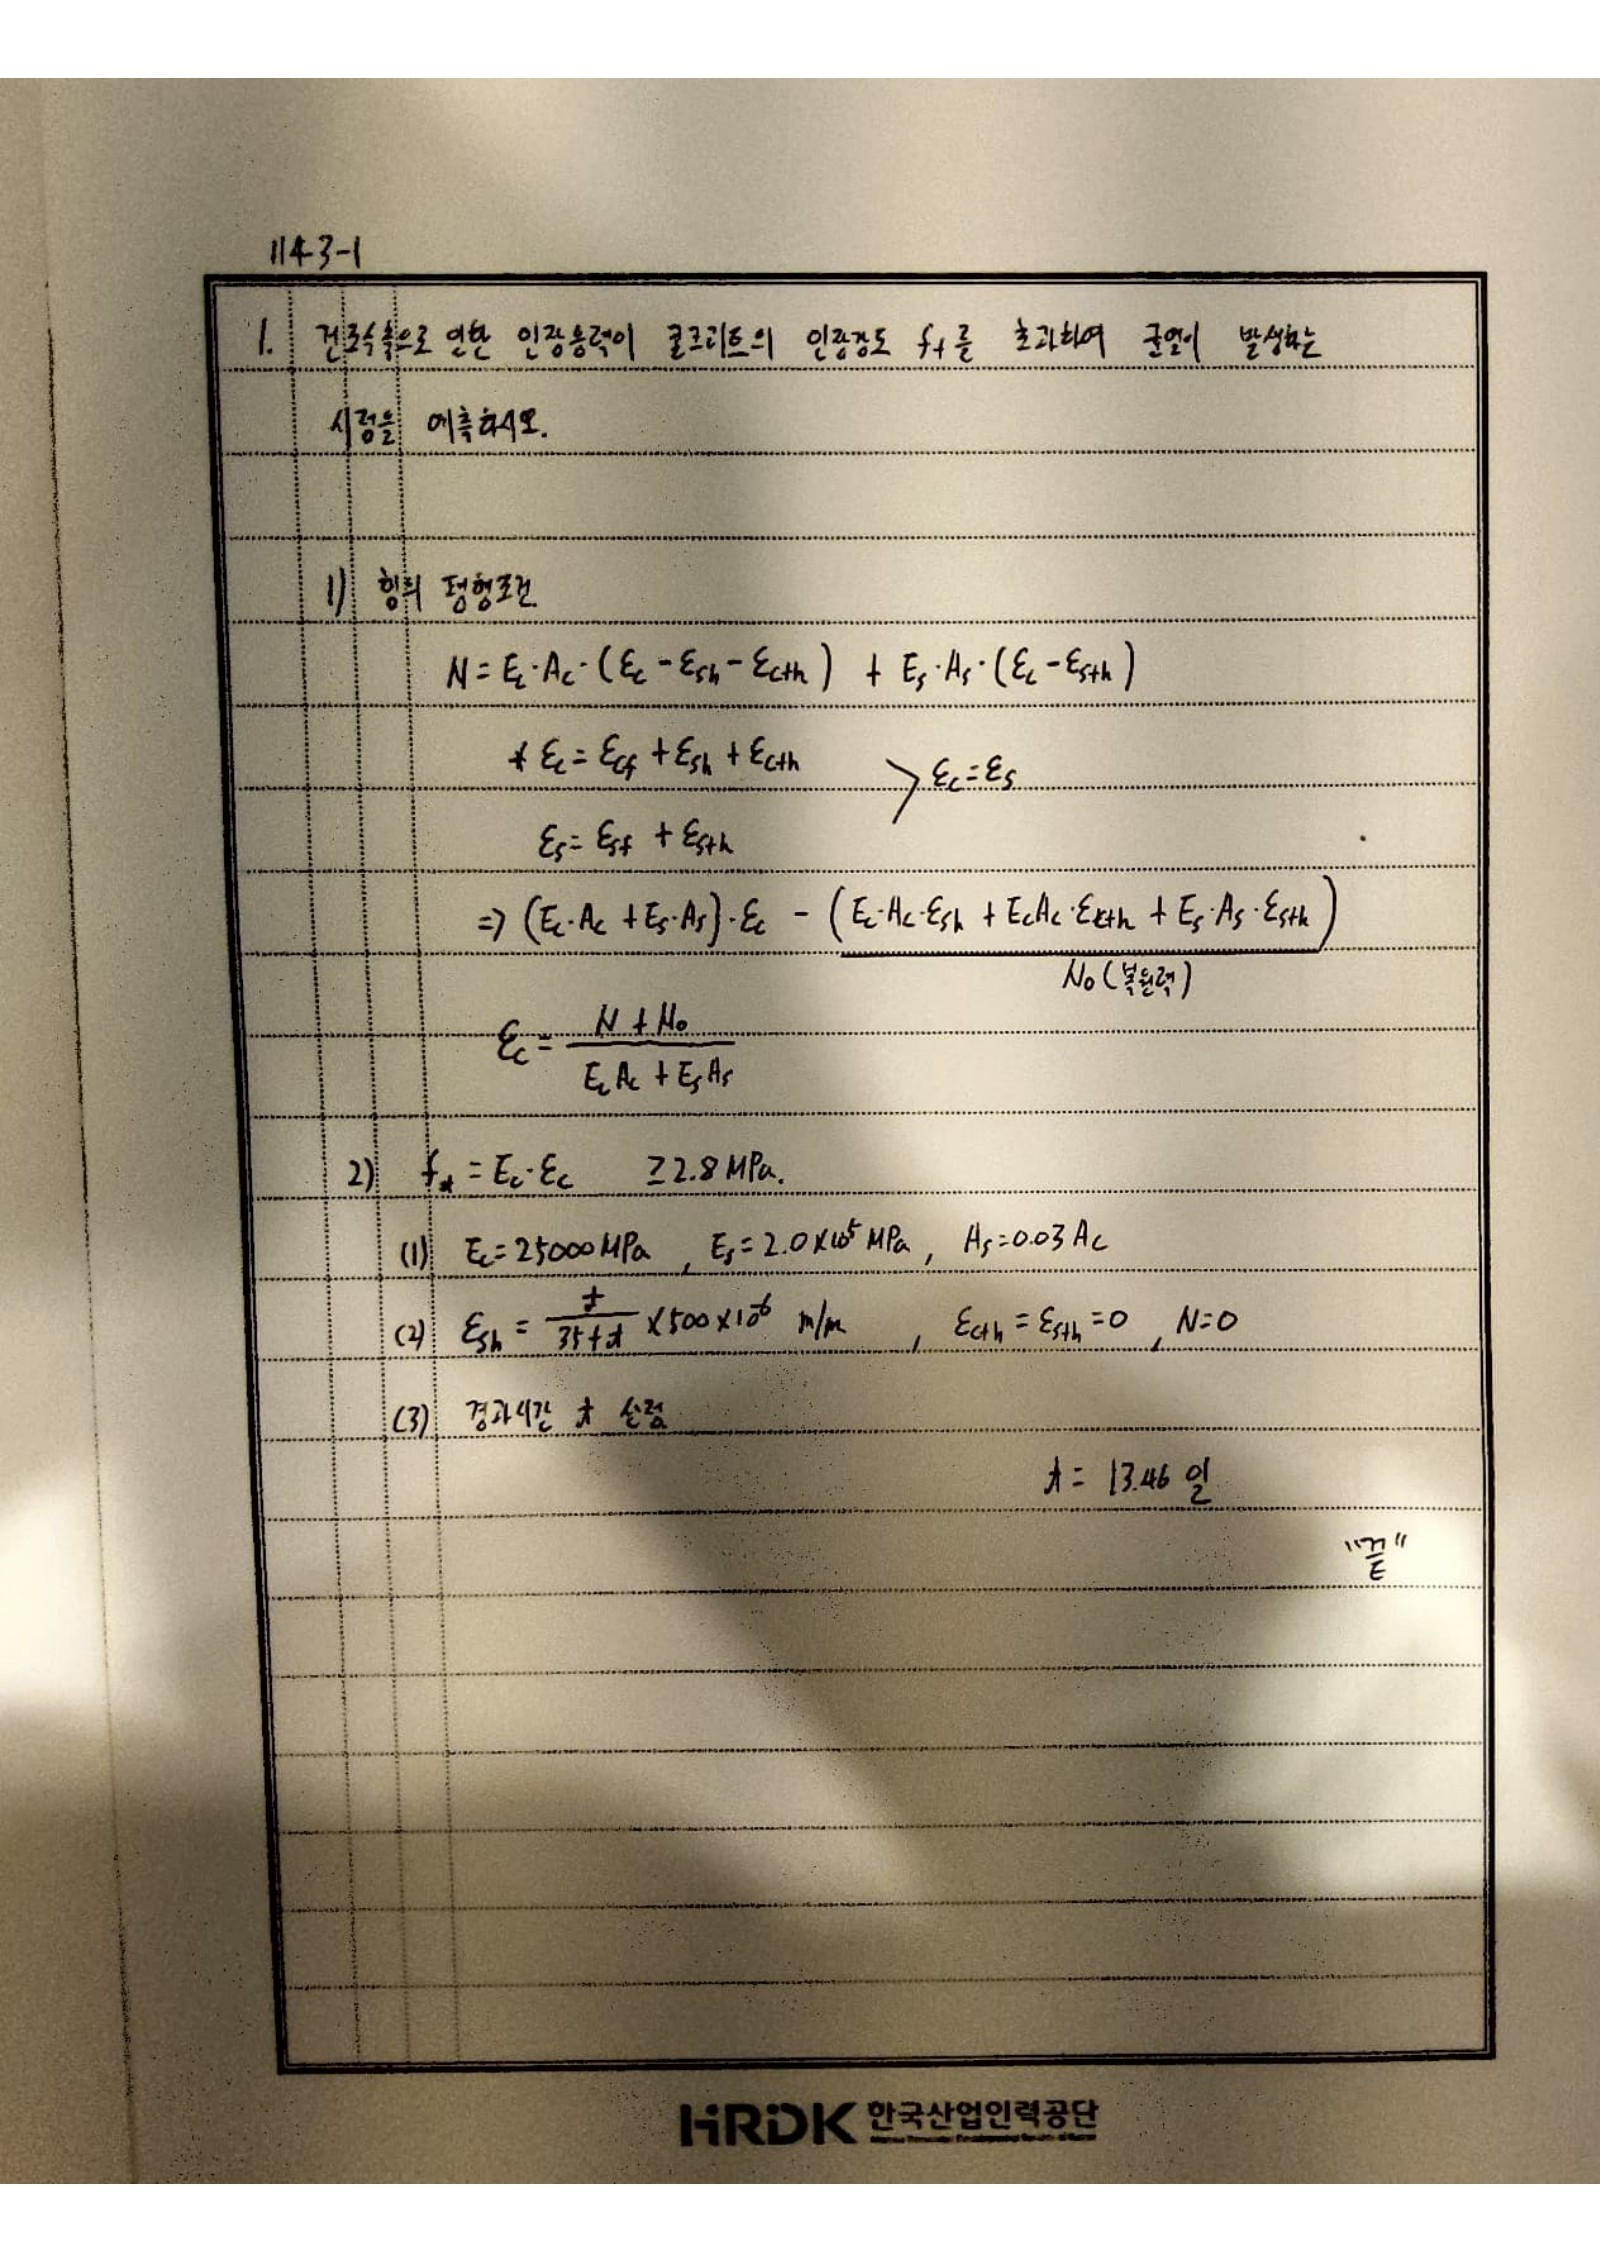 114-3-1
1. 건조수축으로 인한 인장응력이 콘크리트의 인장강도 ft를 초과하여 균열이 발생하는
시점을 예측하시오.
1) 힘의 평형조건
N = Ec·Ac·(εc - εsh - εcth) + Es·As·(εc - εsth)
* εc = εcf + εsh + εcth
> εc = εs
εs = εsf + εsth
=> (Ec·Ac + Es·As)·εc - (Ec·Ac·εsh + EcAc·εcth + Es·As·εsth)
No (복원력)
εc = N + No / EcAc + EsAs
2) ft = Ec·εc ≥ 2.8 MPa.
(1) Ec = 25000 MPa, Es = 2.0×10⁵ MPa, As = 0.03 Ac
(2) εsh = t / 35+t ×500×10⁻⁶ m/m, εcth = εsth = 0, N = 0
(3) 경과시간 t 산정
t = 13.46 일
"끝"
HRDK 한국산업인력공단